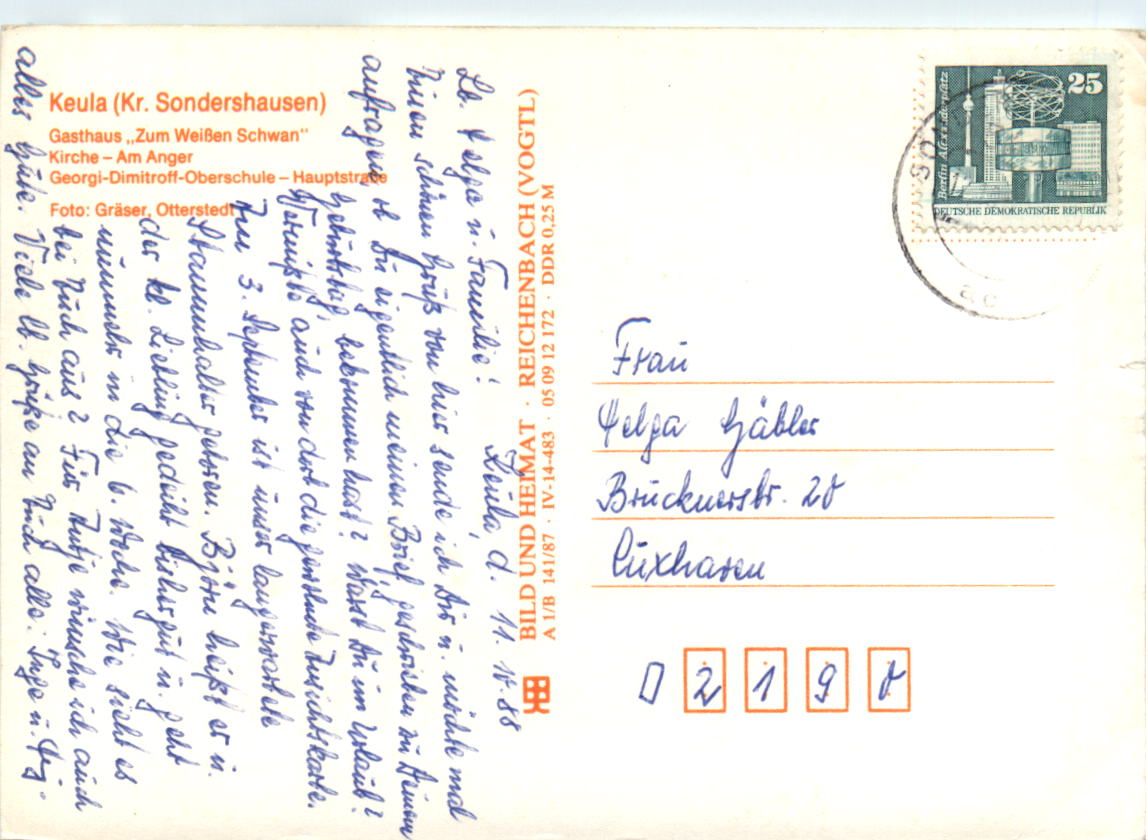 Keula (Kr. Sondershausen)
Gasthaus „Zum Weißen Schwan"
Kirche – Am Anger
Georgi-Dimitroff-Oberschule – Hauptstraße
Foto: Gräser, Otterstedt
Keula, d. 11. 10. 88
Lb. Helga u. Familie!
Einen schönen Gruß von hier sende ich Dir u. möchte mal
anfragen, ob Du eigentlich meinen Brief, geschrieben zu Deinem
Geburtstag, bekommen hast? Warst Du im Urlaub?
Vermißte auch von dort die gewohnte Ansichtskarte.
Am 3. September ist unser langerwartete
Stammhalter geboren. Björn heißt er u.
der kl. Liebling gedeiht bisher gut u. geht
nunmehr in die 6. Woche. Wie sieht es
bei Euch aus? Für Antje wünsche ich auch
alles Gute. Viele lb. Grüße an Euch alle. Inge u.
BILD UND HEIMAT · REICHENBACH (VOGTL)
A 1/B 141/87 · IV-14-483 · 05 09 12 172 · DDR 0,25 M
Berlin Alexanderplatz
25
DEUTSCHE DEMOKRATISCHE REPUBLIK
Frau
Helga Gäbler
Brucknerstr. 20
Cuxhaven
2190